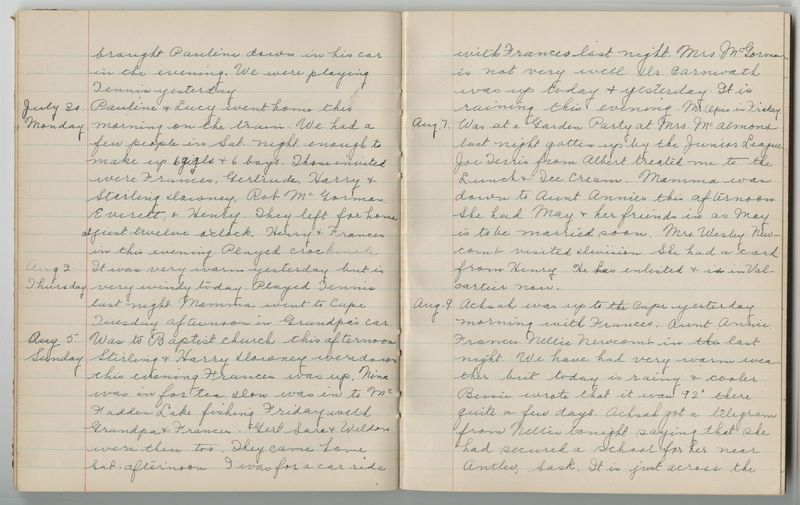 brought Pauline down in his car
in the evening. We were playing
Tennis yesterday
July 30 Pauline & Lucy went home this
Monday morning on the train. We had a
few people in Sat. night enough to
make up 6 girls & 6 boys. Those invited
were Frances, Gertrude, Harry &
Stirling Downey, Rob McGorman,
Everett, & Henry. They left for home
at just twelve o'clock. Henry & Frances
in this evening Played crockonole
Aug 2 It was very warm yesterday but is
Thursday very windy today. Played Tennis
last night Mamma went to Cape
Tuesday afternoon in Grandpa's car.
Aug 5 Was to Baptist church this afternoon
Sunday Stirling & Harry Downey were down
this evening Frances was up. Nina
was in for tea. Don was in to Mc
Fadden Lake fishing Friday with
Grandpa & Frances. & Gert Sara & Weldon
were then too. They came home
Sat. afternoon. I was for a car ride
with Frances last night Mrs McGorman
is not very well Dr. Carnwath
was up today & yesterday It is
raining this evening. is Friday
Aug 7. Was at a Garden Party at Mrs. McAlmond
last night gotten up by the Junior League
Joe Terris from Albert treated me to the
Lunch & Ice Cream. Mamma was
down to Aunt Annies this afternoon
She had May & her friends in as May
is to be married soon. Mrs. Wesley New-
comb visited division She had a card
from Henry He has enlisted & is in Val-
cartier now.
Aug. 9. Achsah was up to the Cape yesterday
morning with Frances. Aunt Annie,
Frances Nellie Newcomb in the last
night. We have had very warm wea-
ther but today is rainy & cooler.
Bessie wrote that it was 92° there
quite a few days. Achsah got a telegram
from Nellie tonight saying that she
had secured a School for her near
Antler, Sask. It is just across the